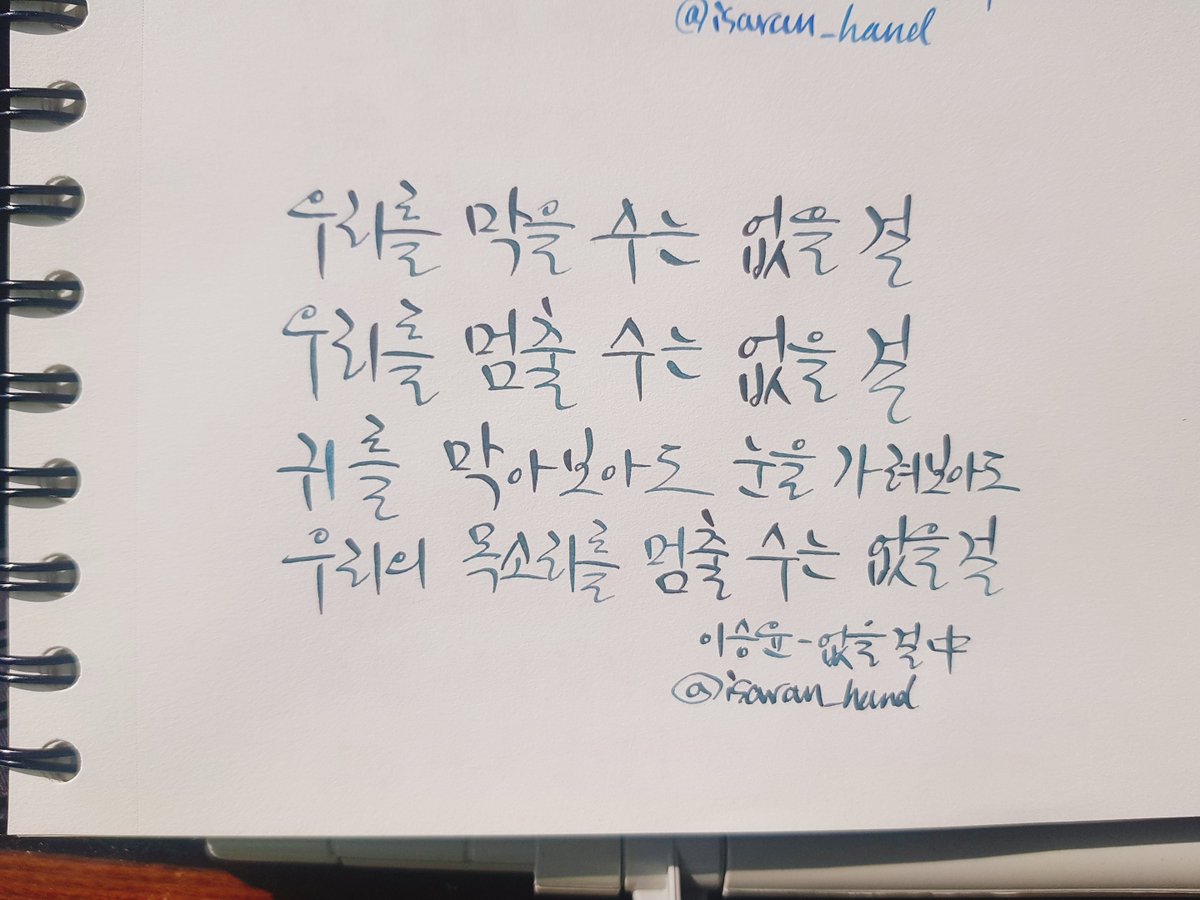 @isaran_hand
우리를 막을 수는 없을 걸
우리를 멈출 수는 없을 걸
귀를 막아보아도 눈을 가려보아도
우리의 목소리를 멈출 수는 없을 걸
이승윤-없을 걸 中
@isaran_hand